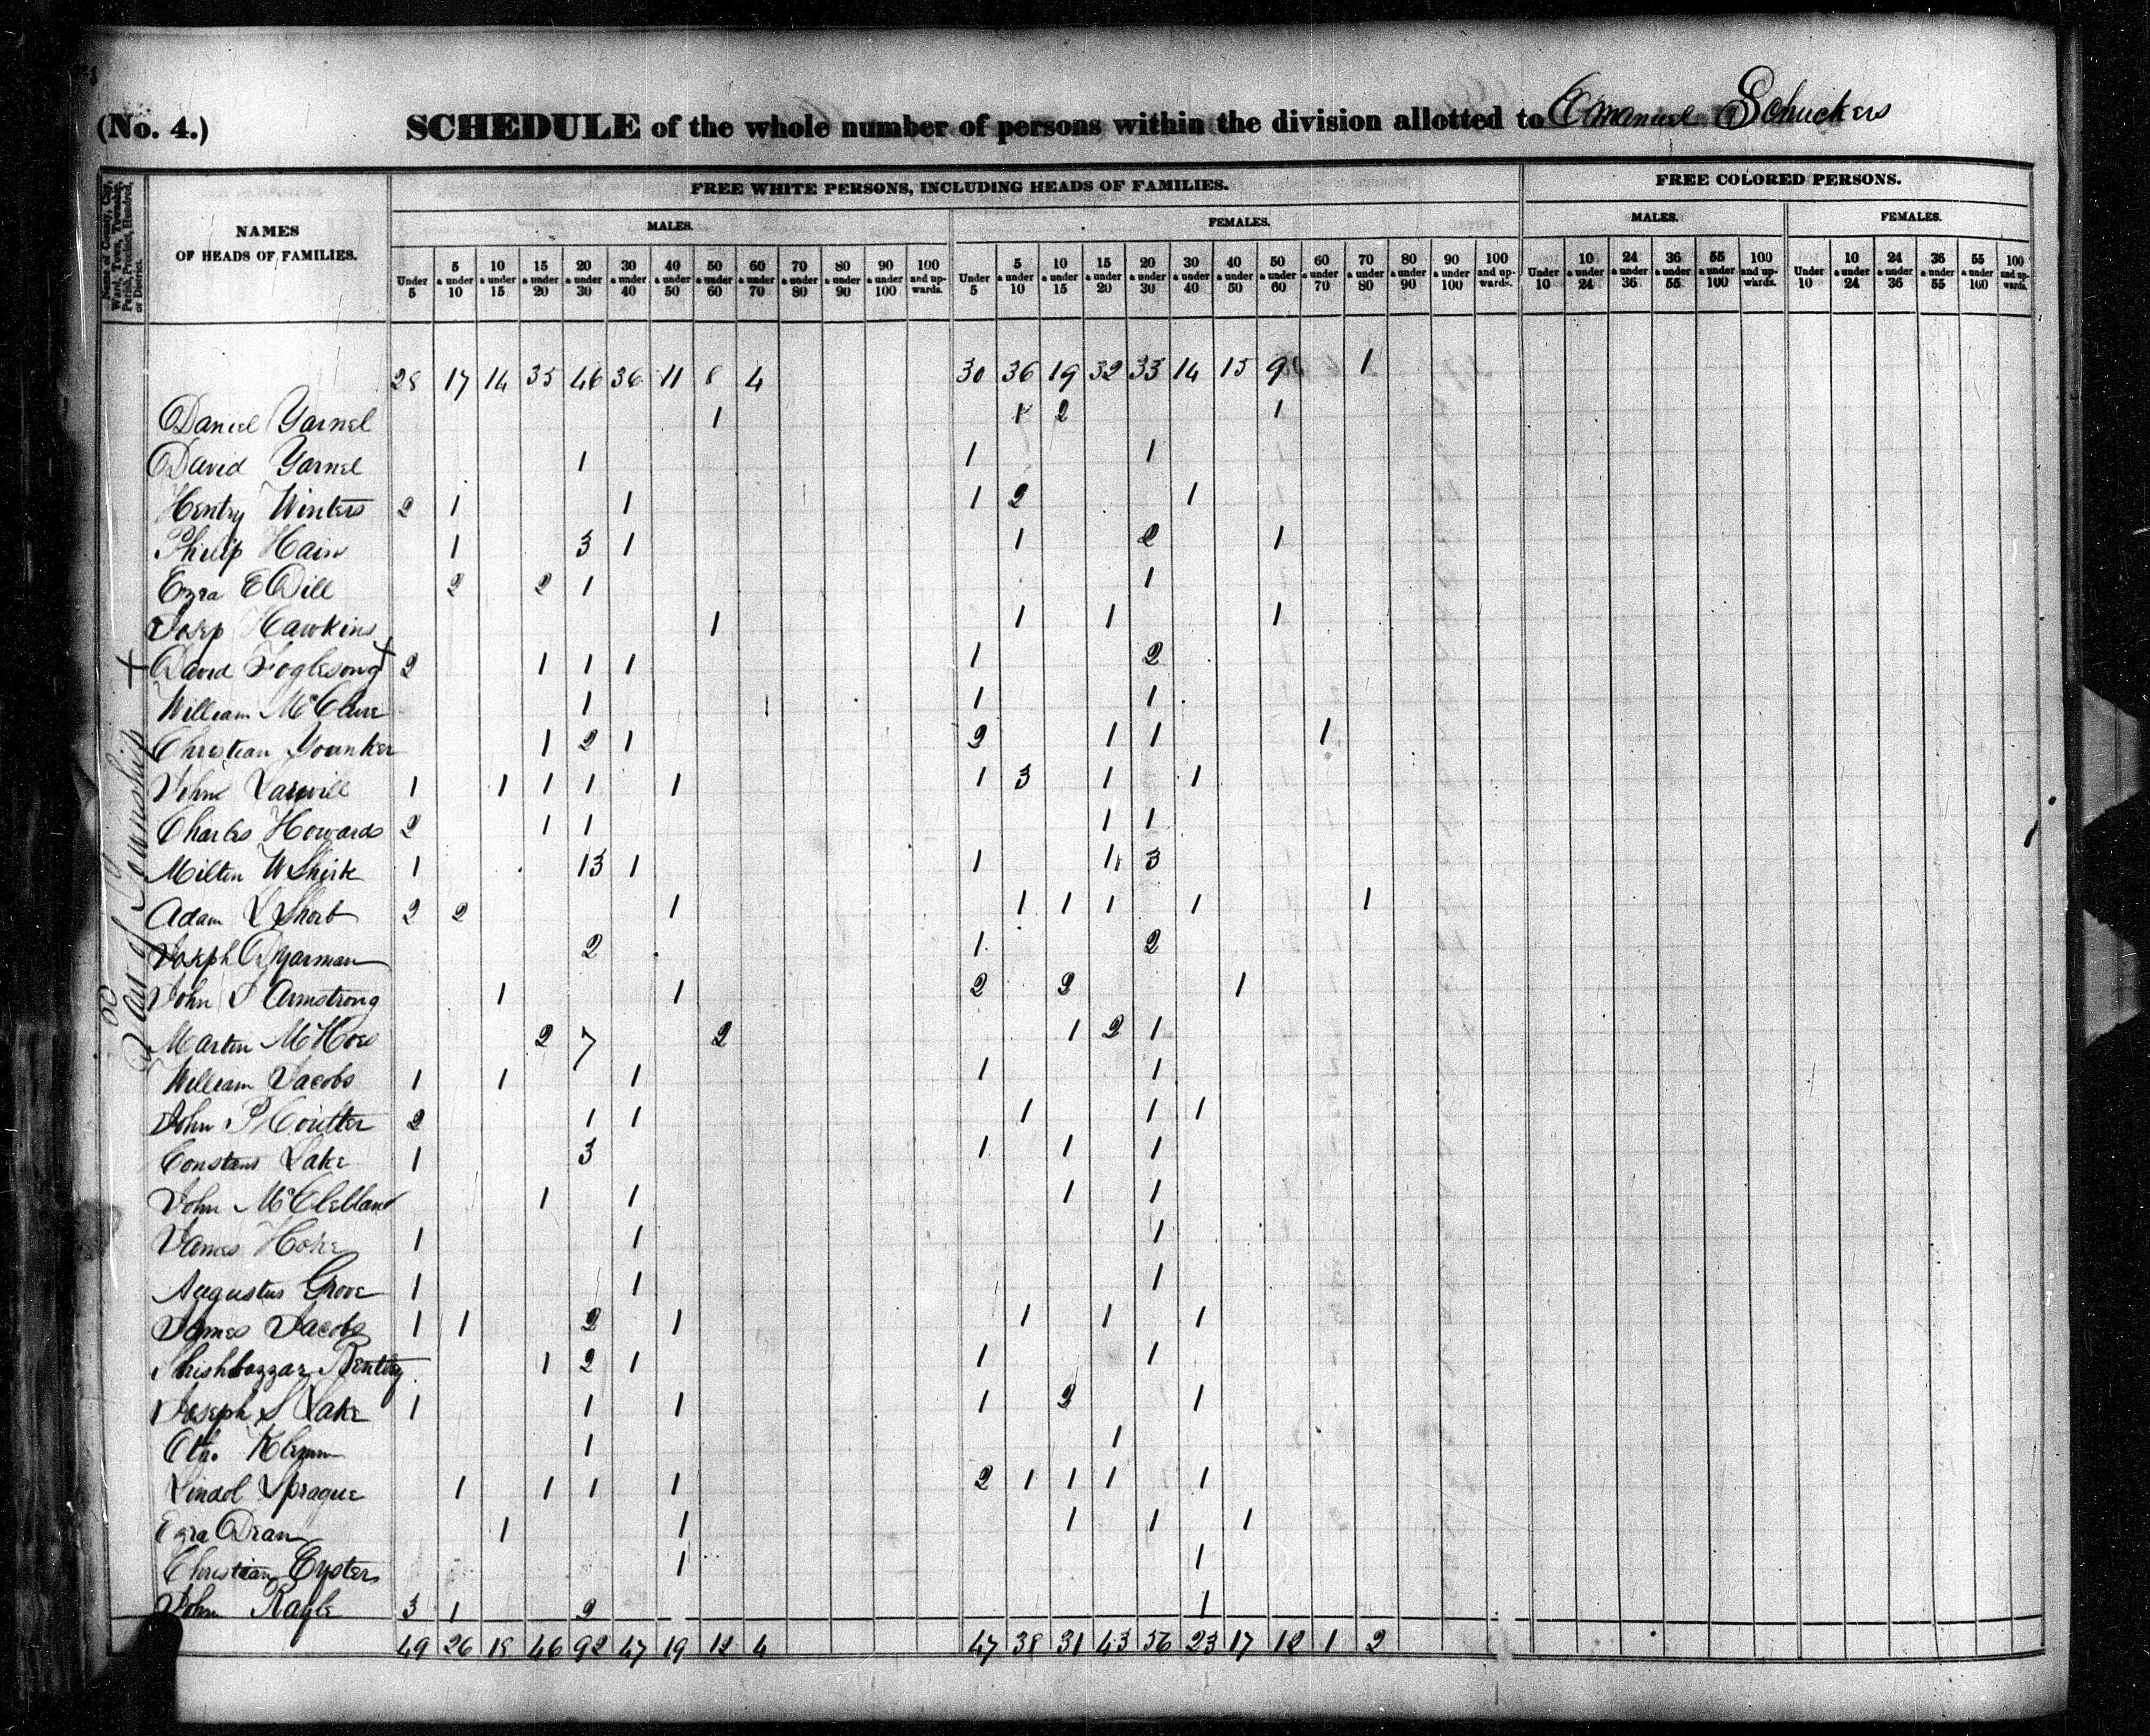 (No. 4.) SCHEDULE of the whole number of persons within the division allotted to Emanuel Schuckers
Name of County, City, Ward, Town, Township, Parish, Precinct, Hundred, or District.
NAMES OF HEADS OF FAMILIES.
FREE WHITE PERSONS, INCLUDING HEADS OF FAMILIES.
FREE COLORED PERSONS.
MALES. FEMALES. MALES. FEMALES.
Under 5 5 & under 10 10 & under 15 15 & under 20 20 & under 30 30 & under 40 40 & under 50 50 & under 60 60 & under 70 70 & under 80 80 & under 90 90 & under 100 100 and upwards. Under 5 5 & under 10 10 & under 15 15 & under 20 20 & under 30 30 & under 40 40 & under 50 50 & under 60 60 & under 70 70 & under 80 80 & under 90 90 & under 100 100 and upwards. Under 10 10 & under 24 24 & under 36 36 & under 55 55 & under 100 100 and upwards. Under 10 10 & under 24 24 & under 36 36 & under 55 55 & under 100 100 and upwards.
28 17 14 35 46 36 11 8 4 30 36 19 32 33 14 15 9 1
Daniel Yarnel 1 1 2 1
David Yarnel 1 1 1
Hentry Winters 2 1 1 1 2 1
Philip Hain 1 3 1 1 2 1
Ezra E Dill 2 2 1 1
Josep Hawkins 1 1 1 1
+ David Foglesong + 2 1 1 1 1 2
William McClure 1 1 1
Christian Younker 1 2 1 2 1 1 1
John Larwill 1 1 1 1 1 1 3 1 1
Charles Howards 2 1 1 1 1
Milton W Shirk 1 13 1 1 1 3
Adam L Shorb 2 2 1 1 1 1 1 1
Joseph Dyarman 2 1 2
John S Armstrong 1 1 2 2 1
Martin McHoes 2 7 2 1 2 1
William Jacobs 1 1 1 1 1
John P Coulter 2 1 1 1 1 1
Constans Lake 1 3 1 1 1
John McClelland 1 1 1 1
James Hoke 1 1 1
Augustus Grove 1 1 1
James Jacobs 1 1 2 1 1 1 1
Shishbazzar Bentley 1 2 1 1 1
Joseph S Lake 1 1 1 1 2 1
Otho Klemm 1 1
Lindol Sprague 1 1 1 1 2 1 1 1 1
Ezra Dran 1 1 1 1 1
Christian Eyster 1 1
John Ragle 3 1 2 1
49 26 18 46 92 47 19 12 4 47 38 31 43 56 23 17 12 1 2
Township